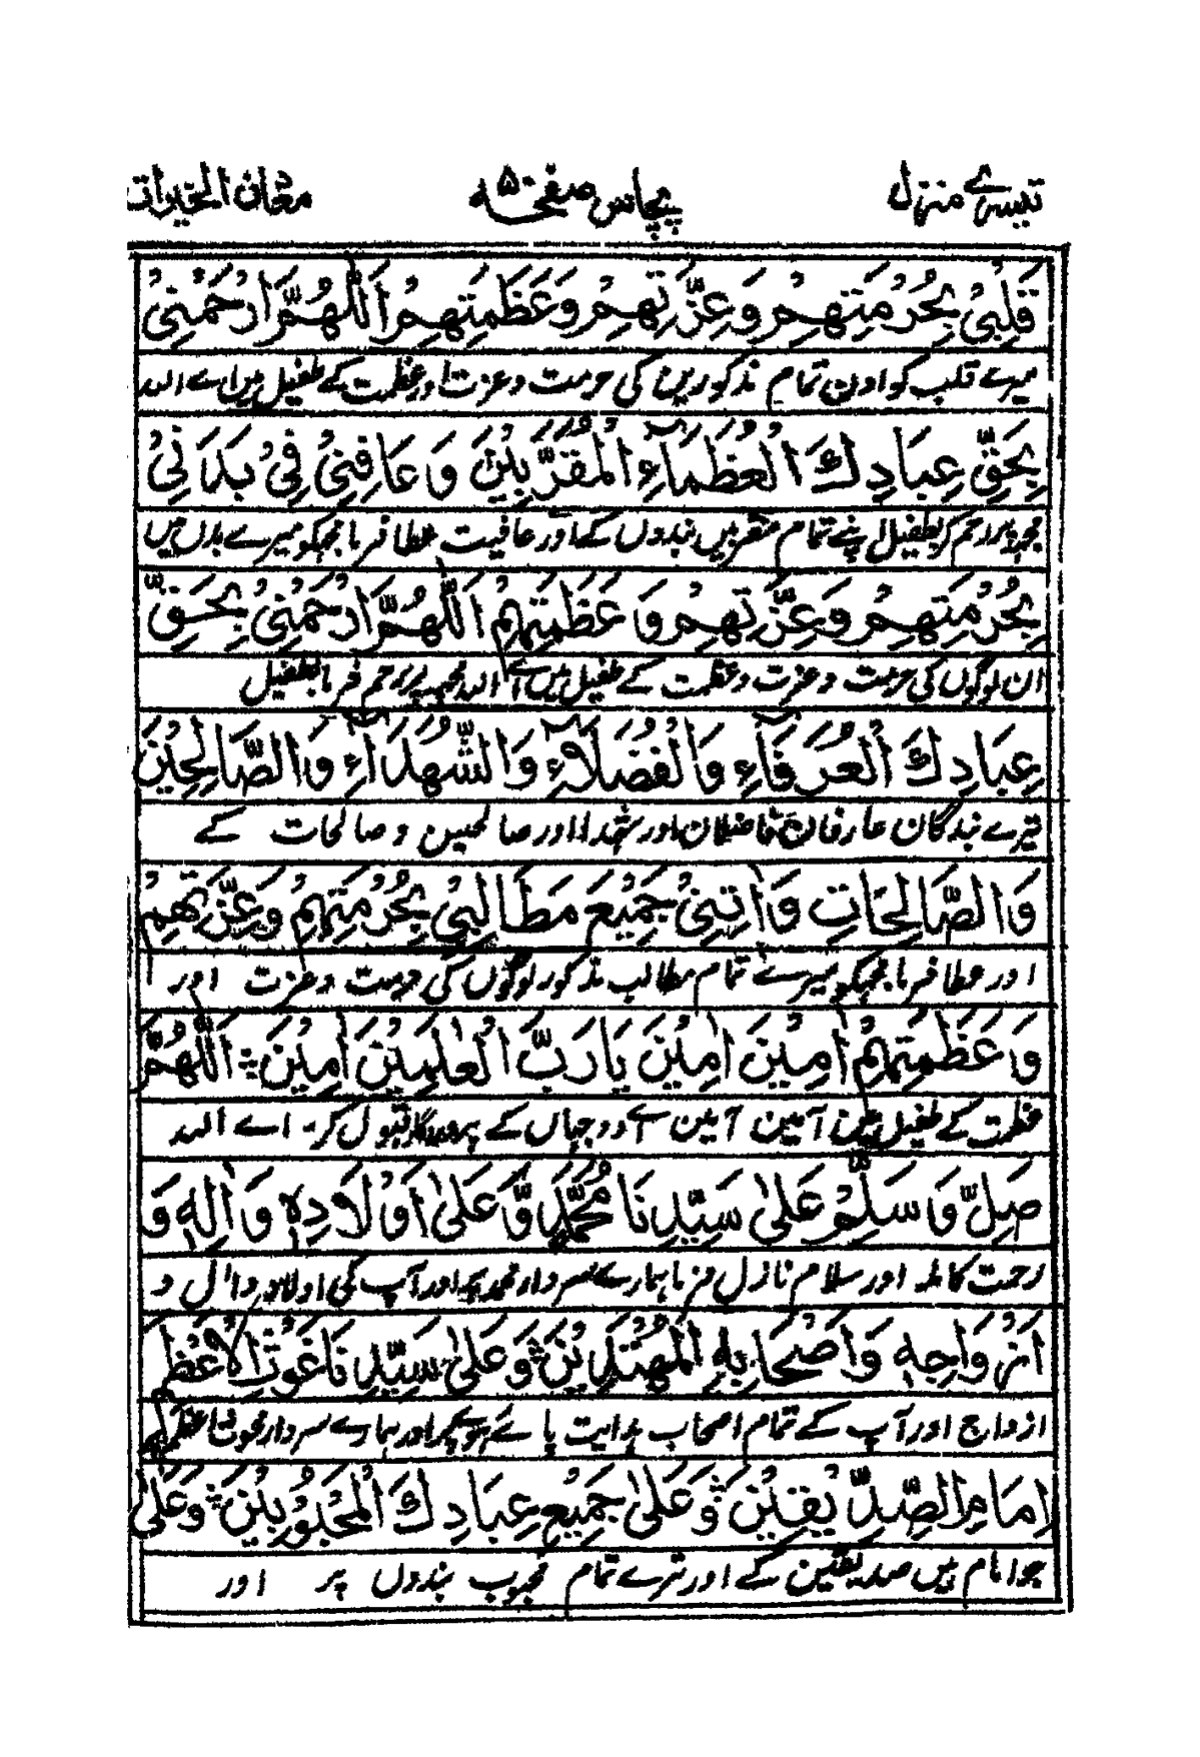 تیسرے منزل پچاس صفحہ ۵۰ معدن الخیرات
قَلْبِىْ بِحُرْمَتِهِمْ وَعِزَّتِهِمْ وَعَظَمَتِهِمْ اَللّٰهُمَّ ارْحَمْنِىْ
میرے قلب کو اون تمام مذکورین کی حرمت و عزت اور عظمت کے طفیل میں اے اللہ
بِحَقِّ عِبَادِكَ الْعُظَمَآءِ الْمُقَرَّبِيْنَ وَعَافِنِىْ فِىْ بَدَنِىْ
مجھ پر رحم کر بطفیل اپنے تمام مقربین بندوں کے اور عافیت عطا فرما مجھکو میرے بدن میں
بِحُرْمَتِهِمْ وَعِزَّتِهِمْ وَعَظَمَتِهِمْ اَللّٰهُمَّ ارْحَمْنِىْ بِحَقِّ
ان لوگوں کی حرمت و عزت و عظمت کے طفیل میں اے اللہ مجھ پر رحم فرما بطفیل
عِبَادِكَ الْعُرَفَآءِ وَالْفُضَلَآءِ وَالشُّهَدَآءِ وَالصَّالِحِيْنَ
تیرے بندگان عارفان فاضلان اور شہدا اور صالحین و صالحات کے
وَالصَّالِحَاتِ وَاٰتِنِىْ جَمِيْعَ مَطَالِبِىْ بِحُرْمَتِهِمْ وَعِزَّتِهِمْ
اور عطا فرما مجھکو میرے تمام مطالب مذکور لوگوں کی حرمت و عزت اور ا
وَعَظَمَتِهِمْ اٰمِيْنَ اٰمِيْنَ يَارَبَّ الْعٰلَمِيْنَ اٰمِيْنَ اَللّٰهُمَّ
عظمت کے طفیل میں آمین آمین اے دو جہاں کے پروردگار قبول کر۔ اے اللہ
صَلِّ وَسَلِّمْ عَلٰى سَيِّدِنَا مُحَمَّدٍ وَّعَلٰى اَوْلَادِهٖ وَاٰلِهٖ وَ
رحمت کاملہ اور سلام نازل فرما ہمارے سردار محمد پر اور آپ کی اولاد و آل و
اَزْوَاجِهٖ وَاَصْحَابِهِ الْمُهْتَدِيْنَ وَعَلٰى سَيِّدِنَا غَوْثِ الْاَعْظَمِ
ازواج اور آپ کے تمام اصحاب ہدایت پائے ہوے پر اور ہمارے سردار غوث اعظم پر
اِمَامِ الصِّدِّيْقِيْنَ وَعَلٰى جَمِيْعِ عِبَادِكَ الْمَحْبُوْبِيْنَ وَعَلٰى
جو امام ہیں صدیقین کے اور تیرے تمام محبوب بندوں پر اور